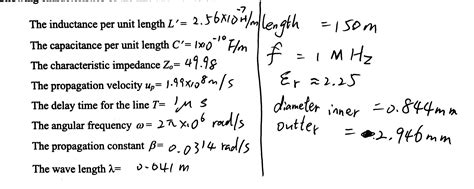 The inductance per unit length L'= 2.56x10^-7 H/m
The capacitance per unit length C'= 1x10^-10 F/m
The characteristic impedance Z₀= 49.98
The propagation velocity uₚ= 1.99x10^8 m/s
The delay time for the line T= 1μs
The angular frequency ω= 2πx10^6 rad/s
The propagation constant β= 0.0314 rad/s
The wave length λ= 0.041 m
length = 150m
f = 1 MHz
εr ≈ 2.25
diameter inner = 0.844mm
outter = 2.946mm